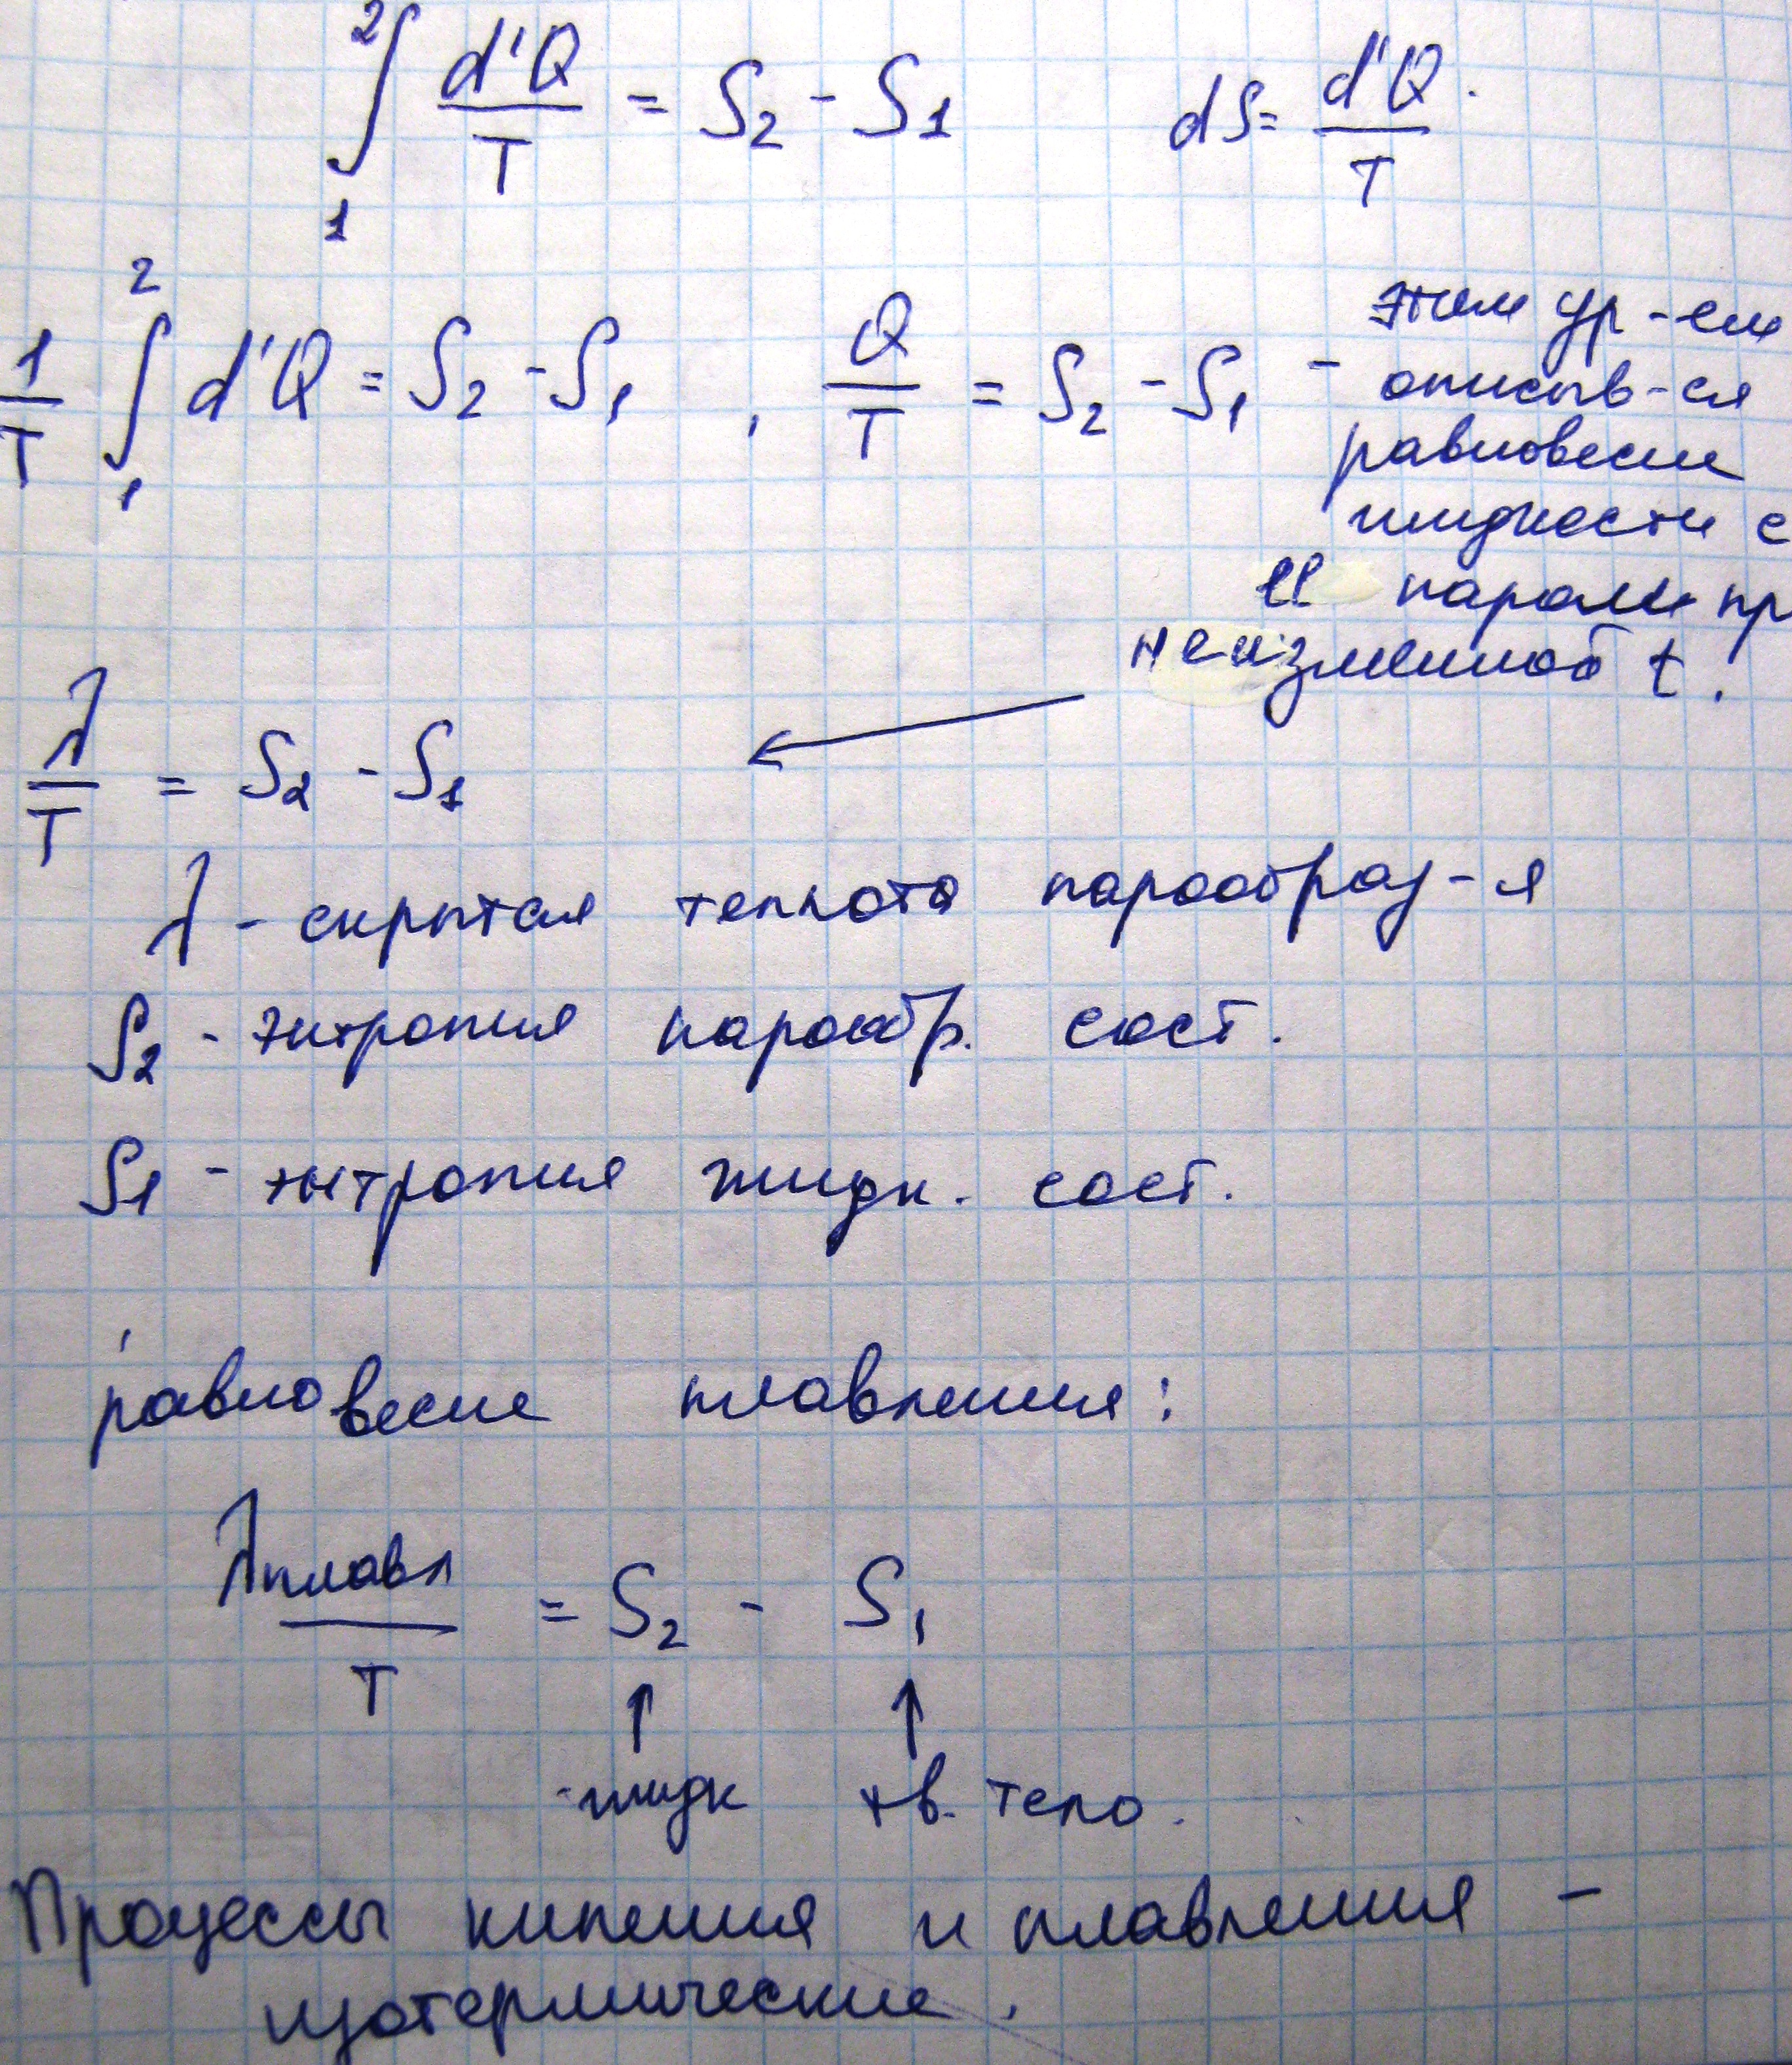 ∫₁² d'Q/T = S₂ - S₁    dS = d'Q/T.
1/T ∫₁² d'Q = S₂ - S₁ , Q/T = S₂ - S₁ - этим ур-ем
описыв-ся
равновесие
жидкости с
её парами пр
неизменной t.
λ/T = S₂ - S₁
λ - скрытая теплота парообраз-я
S₂ - энтропия парообр. сост.
S₁ - энтропия жидк. сост.
равновесие плавления:
λплавл/T = S₂ - S₁
↑ ↑
жидк тв. тело.
Процессы кипения и плавления -
изотермические.